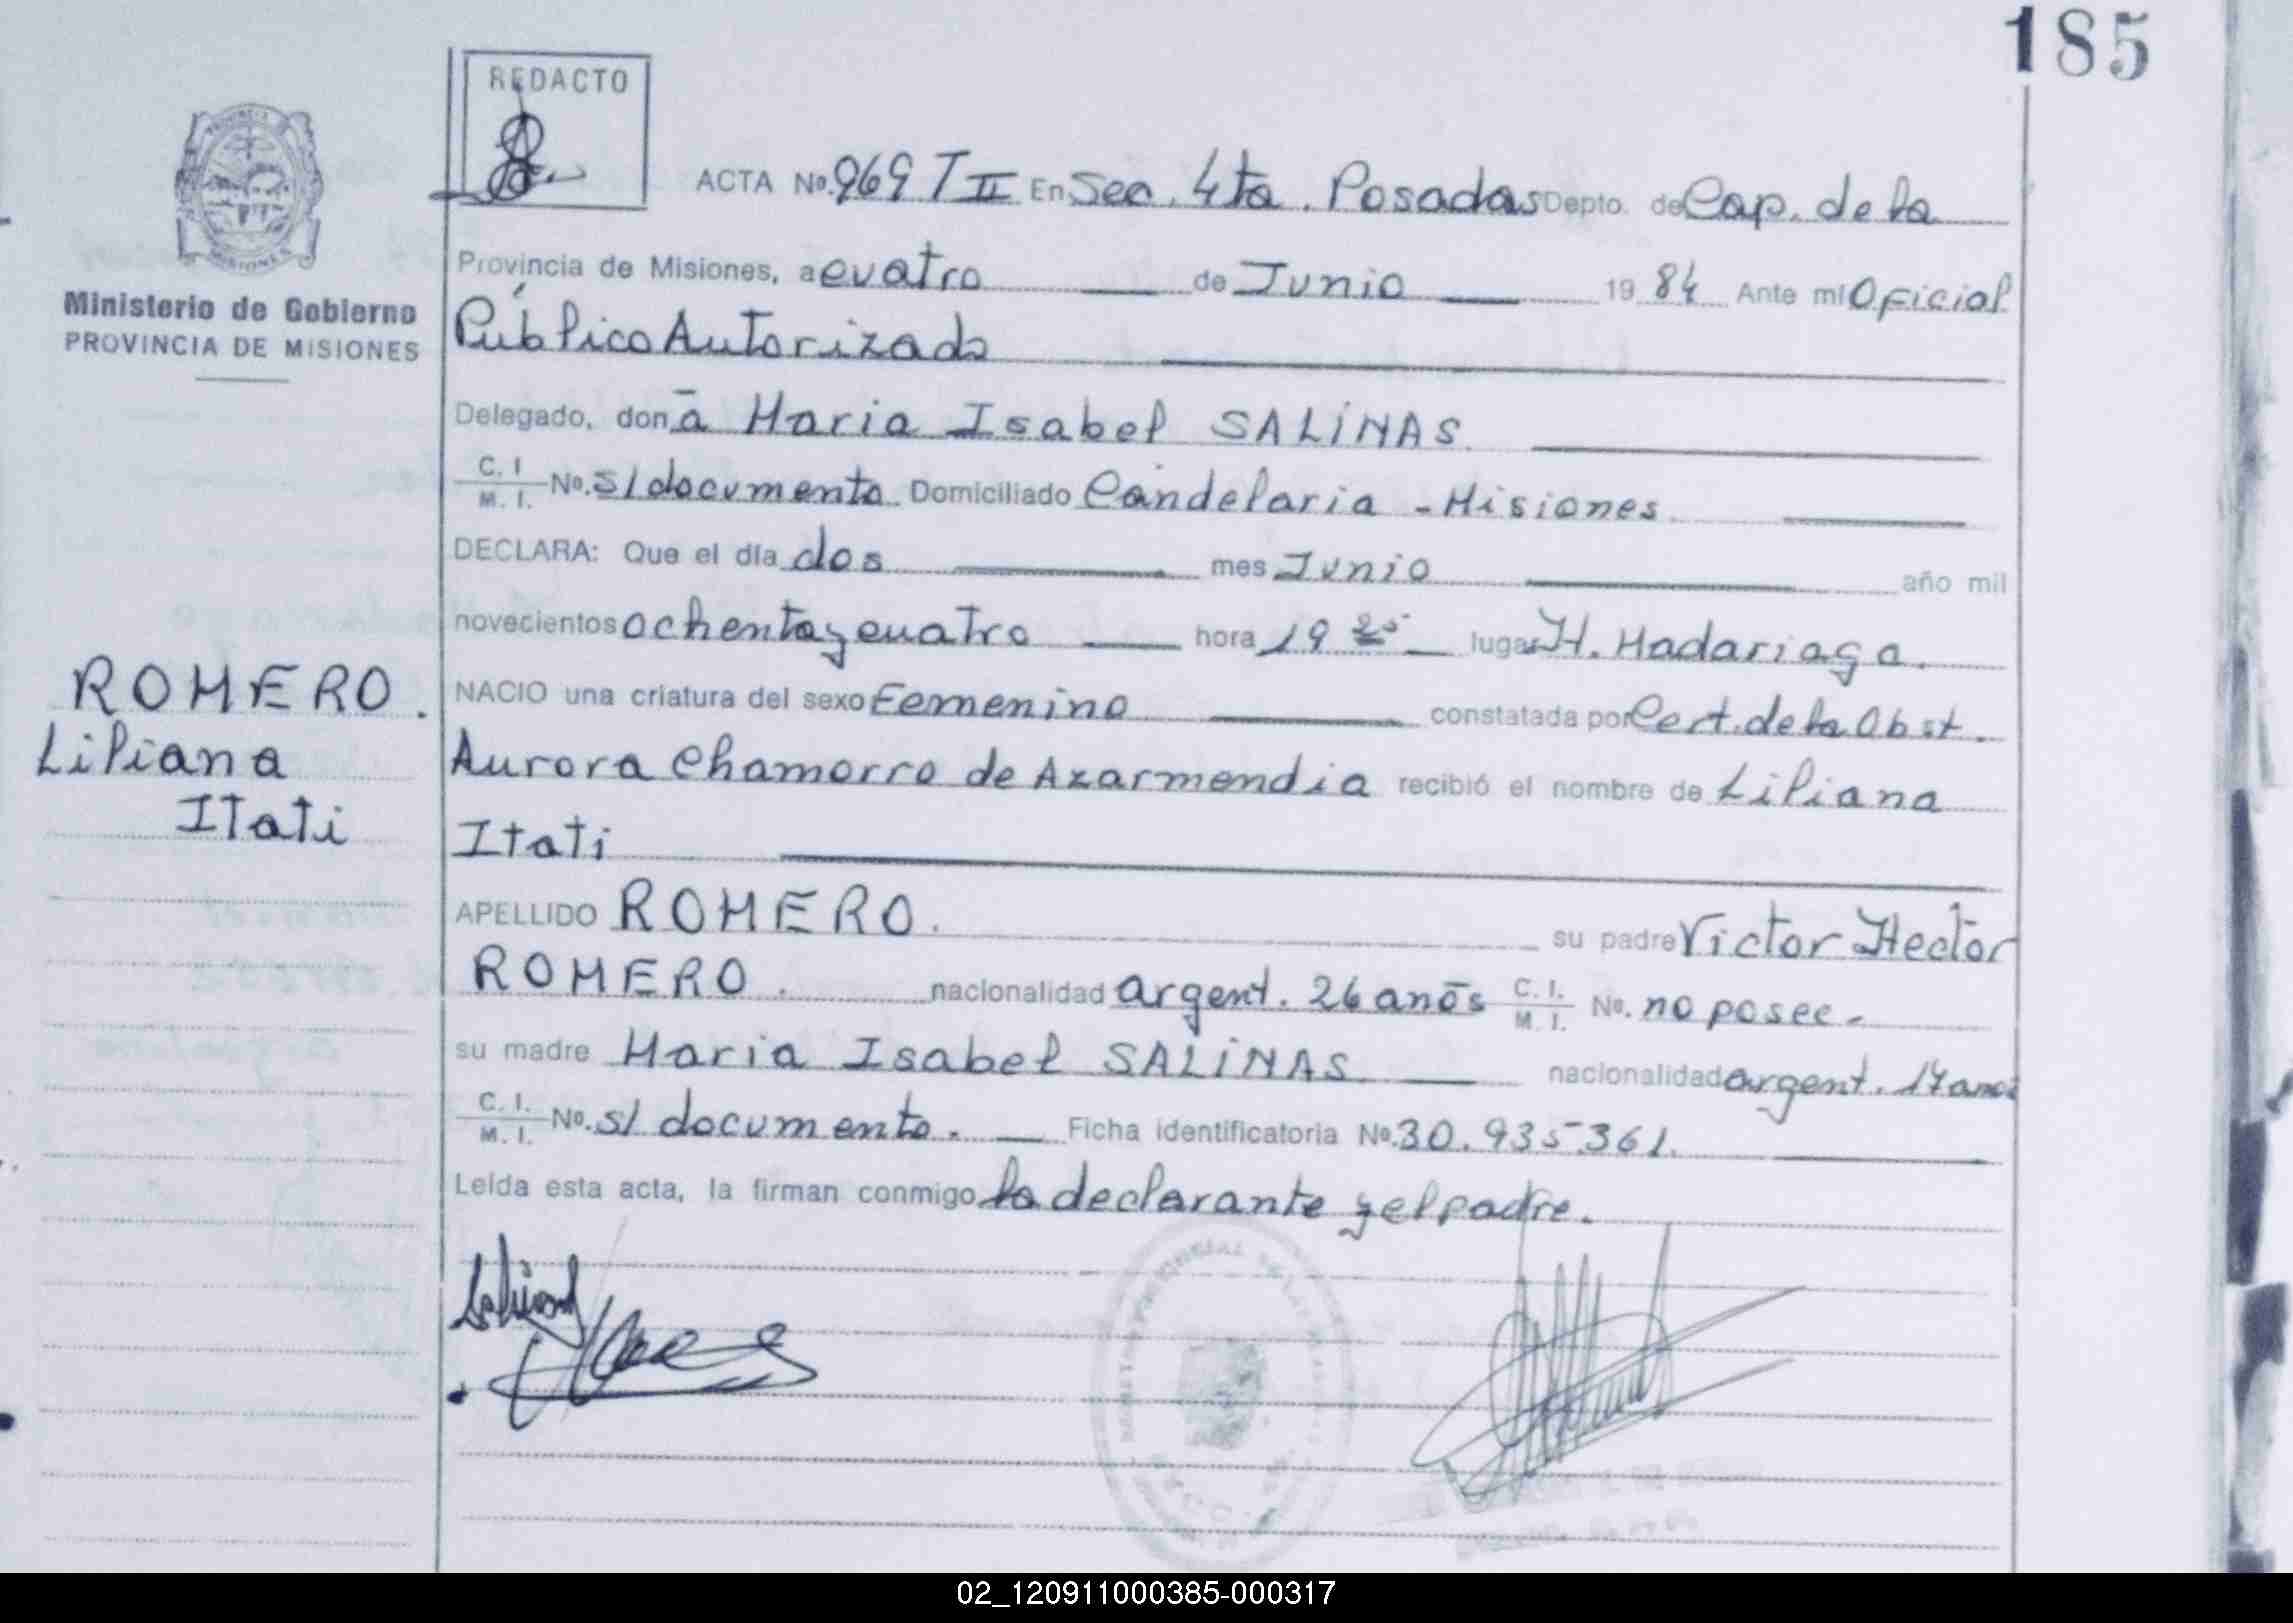 185
REDACTO
PROVINCIA DE
MISIONES
Ministerio de Gobierno
PROVINCIA DE MISIONES
ROMERO.
Liliana
Itati
ACTA No. 969 T II En Sec. 4ta. Posadas Depto. de Cap. de la
Provincia de Misiones, a cuatro de Junio 19 84 Ante mi Oficial
Público Autorizado
Delegado, don a Maria Isabel SALINAS
C. I. M. I. No. s/documento Domiciliado Candelaria - Misiones
DECLARA: Que el día dos mes Junio año mil
novecientos ochenta y cuatro hora 19 lugar H. Madariaga.
NACIO una criatura del sexo Femenino constatada por Cert. de la Obst.
Aurora Chamorro de Azarmendia recibió el nombre de Liliana
Itati
APELLIDO ROMERO. su padre Victor Hector
ROMERO. nacionalidad argent. 26 años C. I. M. I. No. no posee.
su madre Maria Isabel SALINAS nacionalidad argent. 17 anos
C. I. M. I. No. s/ documento. Ficha identificatoria No. 30.935.361.
Leída esta acta, la firman conmigo la declarante y el padre.
02_120911000385-000317